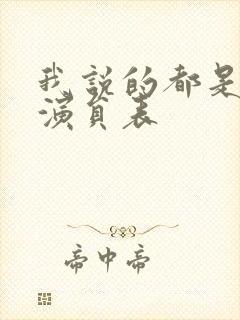 我说的都是
演员表
帝中帝